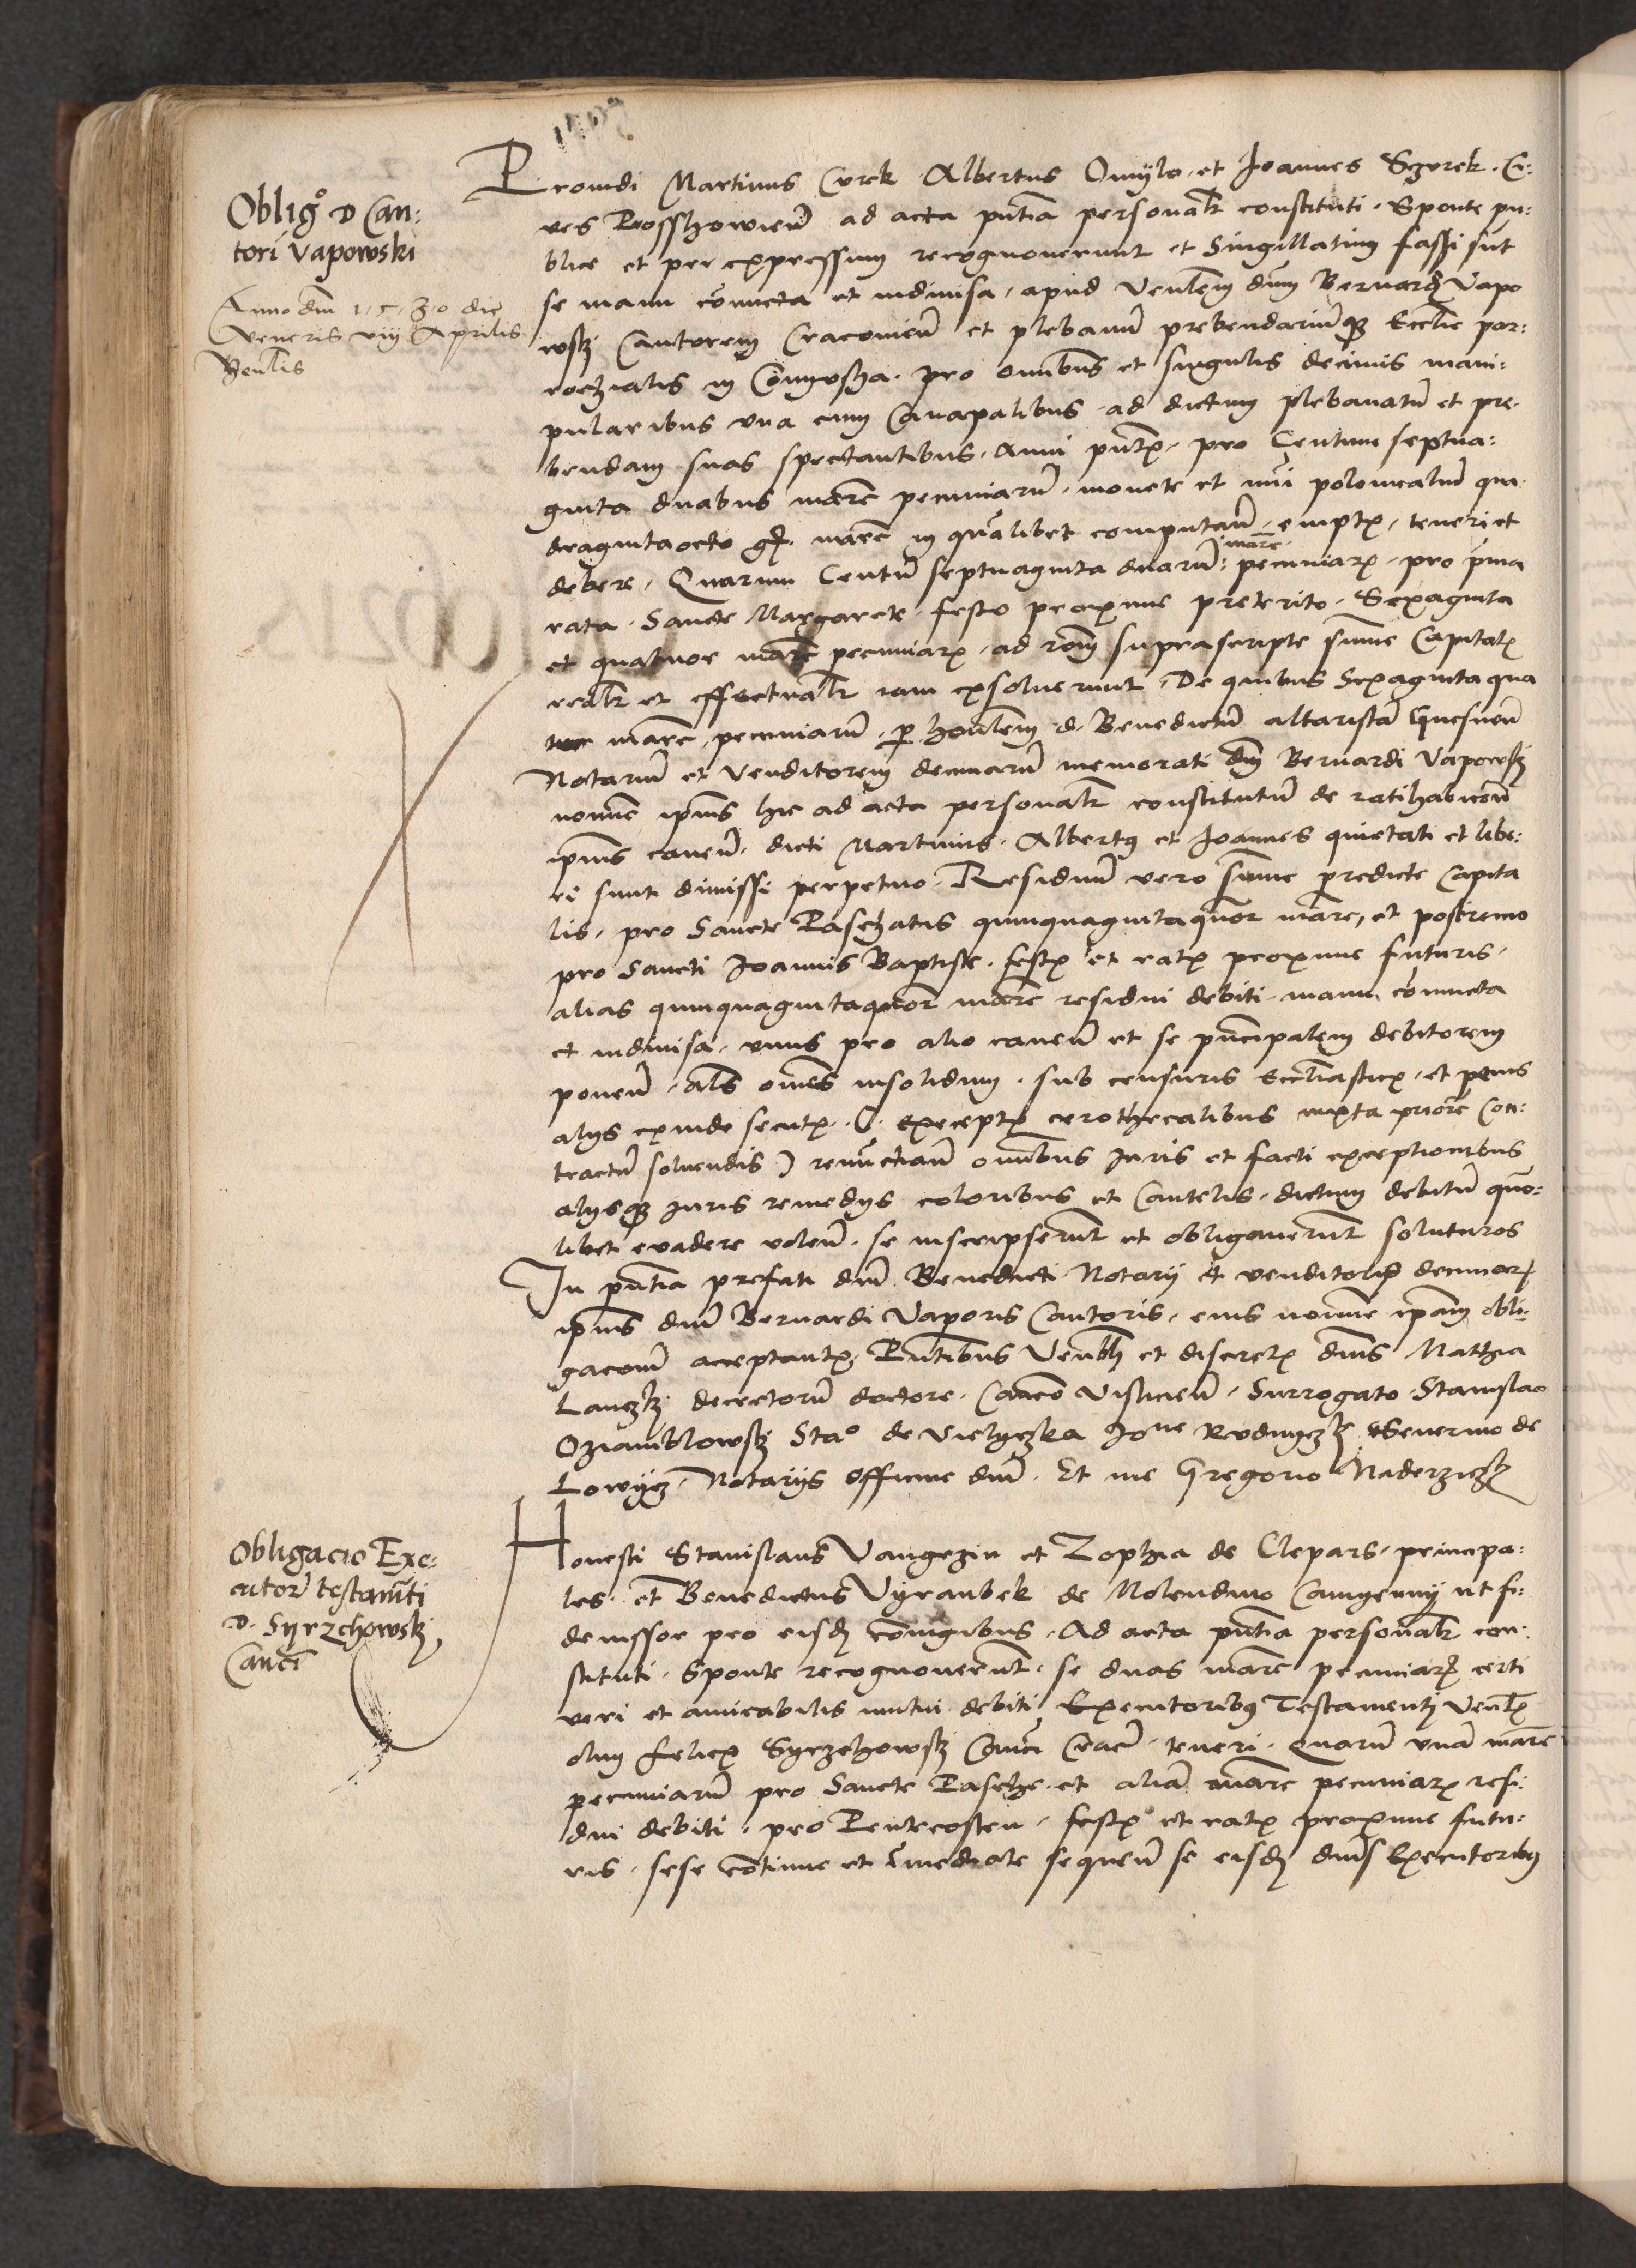 Oblig° D Can:
tori Vapowski
Anno dni 1.5.30 die
Veneris viij Aprilis
Providi Martinus Curek Albertus Omylo et Joannes Sczurek Ci:
ves Prosszowien̄ ad acta pn̄tia personalr̄ constituti. Sponte pu:
blice et per expressum recognoverunt et Singillatim fassi sūt
se manu cōiuncta et indivisa, apud Venlem dnm̄ Bernardū Vapo
wskj Cantorem Cracovien̄ et plebanū prebendariūq̨ Ecclie par:
rochialis in . pro omnibus et singulis decimis mani:
pularibus una cum Canapalibus ad dictum plebanatū et pre
bendam suas spectantibus. Anni pn̄tis. pro Centum septua:
ginta duabus marc̄ pecuniarū. monete et nūi polonicaliū qua
draginta octo gr̄. marc̄ in qualibet computan̄. emptis, teneri et
debere. Quarum Centū septuaginta duarū: marc̄ pecuniarꝝ. pro prīa
rata. Sancte Margarete. festo proxime preterito. Sexaginta
et quatuor marc̄ pecuniarꝝ. ad rōnem suprascripte summe Capitalis
realr̄ et effectualr̄ iam exsolverunt. De quibus Sexaginta qua
tuor marc̄. pecuniarū. per honlem d. Benedictū altaristā Gnesnen̄
Notariū et Venditorem decimarū memorati dnī Bernardi Vapowskj
nomine ipīus hic ad acta personalr̄ constitutū de ratihabicōn̄
ipīus caven̄. dicti Martinus. Albertus et Joannes quietati et libe:
ri sunt dimissi perpetuo. Residuū vero summe predicte Capita
lis. pro Sancte Paschatis quinquagintaquor marc̄, et postremo
pro Sancti Joannis Baptiste. festis et ratis proxime futuris.
alias quinquagintaquor marc̄ residui debiti. manu cōiuncta
et indivisa. unus pro alio caven̄ et se principalem debitorem
ponen̄. als oēs insolidum. sub censuris ecclīasticis, et penis
alijs exinde secutis. (. exceptis cerothecalibus iuxta priorē Con:
tractū solvendis) renunctian̄ omībus Juris et facti exceptionibus
alijsq̨ Juris remedijs coloribus et Cautelis. dictum debitū quo:
libet evadere volen̄. se inscripserunt et obligaverunt soluturos
In pn̄tia prefati dnī Benedicti Notarij et venditoris decimarꝝ
ipīus dnī Bernardi Vaporis Cantoris, eius nomine ipam obli:
gacōm̄ acceptantis. Pn̄tibus Venblibus et discretis dnīs Mathia
decretorū doctore. Canco Vislicien̄. Surrogato Stanislao
Oziamblowskj Sta° de Vielyczka Joñe et Severino de
Lowijcz. Notarijs officine dnī. Et me Gregorio
Obligacio Exe:
cutorū testam̄ti
D. Syrzchowskj
Canci
Honesti Stanislaus Vangrzin et Zophia de Clepars, principa:
les. et Benedictus Vyranbek de Molendino ut fi:
deiussor pro eisdem coniugibus. Ad acta pn̄tia personalr̄ con:
stituti. Sponte recognoverunt. se duas marc̄ pecuniarꝝ certi
veri et amicabilis mutui debiti Executoribus Testamenti Venlis
olim felicis Syrzchowskj Canci Crac̄. teneri. Quarū unā marc̄
pecuniarū pro Sancte Pasche. et aliā marc̄ pecuniarꝝ resi:
dui debiti. pro Pentecosten. festis et ratis proxime futu:
ris. sese continue et īmediate sequen̄ se eisdem dnīs Executoribus